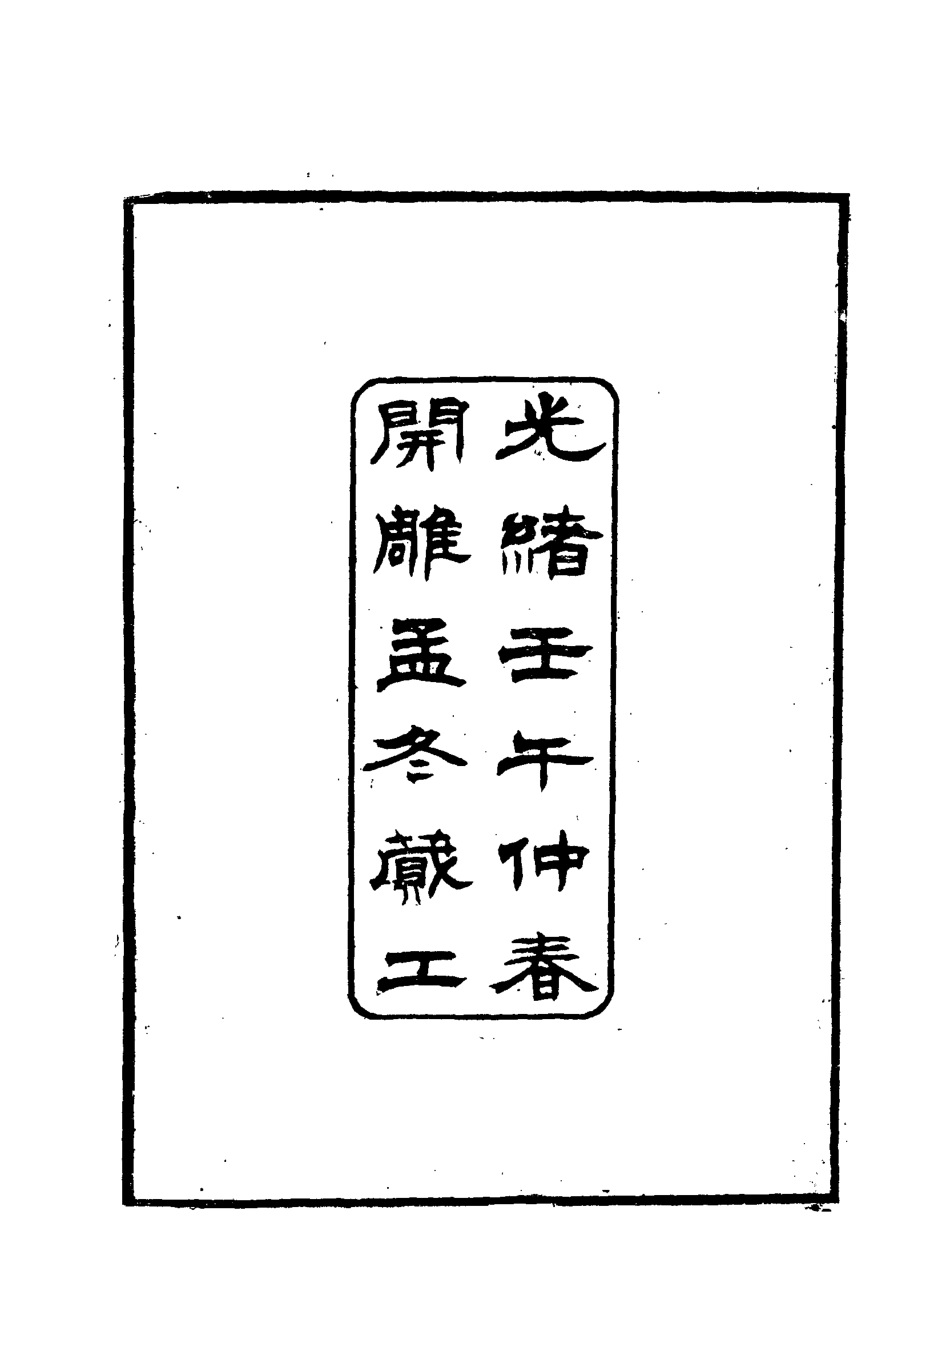 光緒壬午仲春
開雕孟冬蕆工